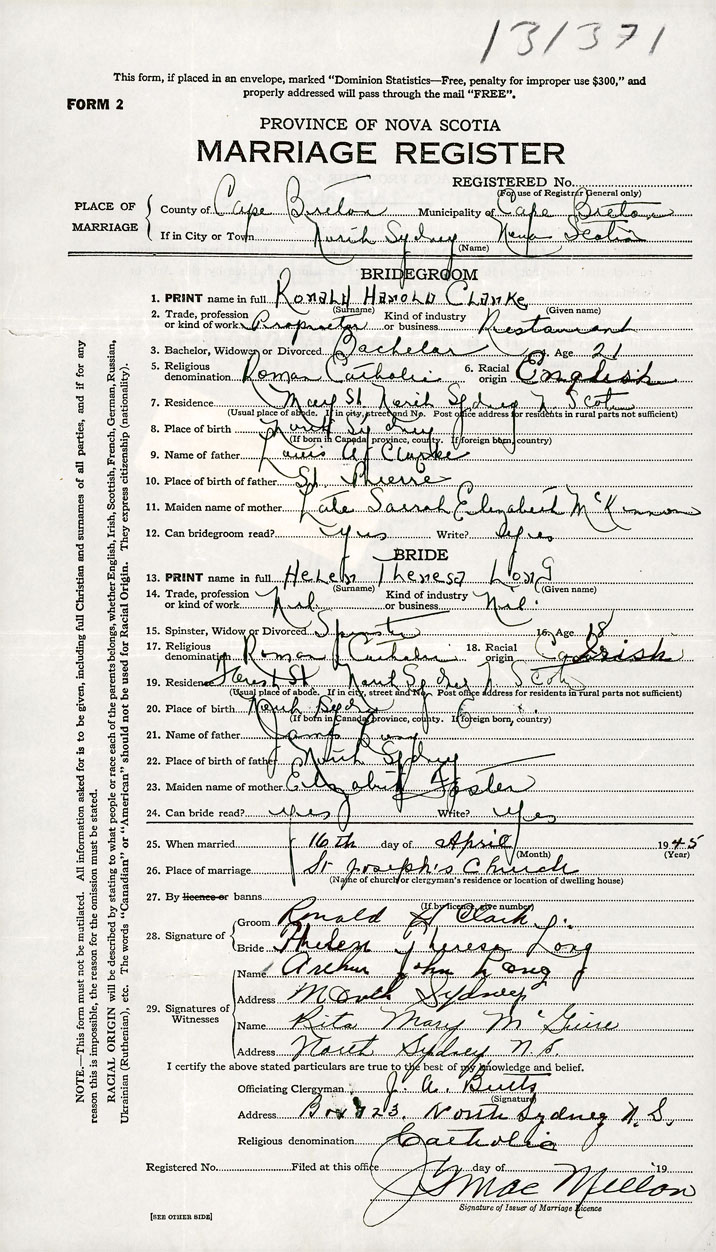 131371
This form, if placed in an envelope, marked "Dominion Statistics—Free, penalty for improper use $300," and
properly addressed will pass through the mail "FREE".
FORM 2
PROVINCE OF NOVA SCOTIA
MARRIAGE REGISTER
REGISTERED No.
(For use of Registrar General only)
PLACE OF MARRIAGE
County of Cape Breton Municipality of Cape Breton
If in City or Town North Sydney Nova Scotia
(Name)
BRIDEGROOM
1. PRINT name in full Ronald Harold Clarke
(Surname) (Given name)
2. Trade, profession or kind of work Proprietor Kind of industry or business Restaurant
3. Bachelor, Widower or Divorced Bachelor 4. Age 21
5. Religious denomination Roman Catholic 6. Racial origin English
7. Residence May St. North Sydney N. Scotia
(Usual place of abode. If in city, street and No. Post office address for residents in rural parts not sufficient)
8. Place of birth North Sydney
(If born in Canada province, county. If foreign born, country)
9. Name of father Louis A. Clarke
10. Place of birth of father St. Pierre
11. Maiden name of mother Late Sarah Elizabeth McKinnon
12. Can bridegroom read? yes Write? yes
BRIDE
13. PRINT name in full Helen Theresa Long
(Surname) (Given name)
14. Trade, profession or kind of work Nil. Kind of industry or business Nil.
15. Spinster, Widow or Divorced Spinster 16. Age 18
17. Religious denomination Roman Catholic 18. Racial origin Irish
19. Residence Forest St North Sydney N Scotia
(Usual place of abode. If in city, street and No. Post office address for residents in rural parts not sufficient)
20. Place of birth North Sydney
(If born in Canada province, county. If foreign born, country)
21. Name of father James Long
22. Place of birth of father North Sydney
23. Maiden name of mother Elizabeth Foster
24. Can bride read? yes Write? yes
25. When married 16th day of April 1945
(Month) (Year)
26. Place of marriage St Joseph's Church
(Name of church or clergyman's residence or location of dwelling house)
27. By licence or banns
(If by licence, give number)
28. Signature of
Groom Ronald H Clark
Bride Helen Theresa Long
29. Signatures of Witnesses
Name Arthur John Long
Address North Sydney
Name Rita Mary McGuire
Address North Sydney N.S.
I certify the above stated particulars are true to the best of my knowledge and belief.
Officiating Clergyman J. A. Butts
(Signature)
Address Box 723, North Sydney N.S.
Religious denomination Catholic
Registered No. Filed at this office day of 19
J S MacMillan
Signature of Issuer of Marriage Licence
[SEE OTHER SIDE]
NOTE.—This form must not be mutilated. All information asked for is to be given, including full Christian and surnames of all parties, and if for any
reason this is impossible, the reason for the omission must be stated.
RACIAL ORIGIN will be described by stating to what people or race each of the parents belongs, whether English, Irish, Scottish, French, German, Russian,
Ukrainian (Ruthenian), etc. The words "Canadian" or "American" should not be used for Racial Origin. They express citizenship (nationality).